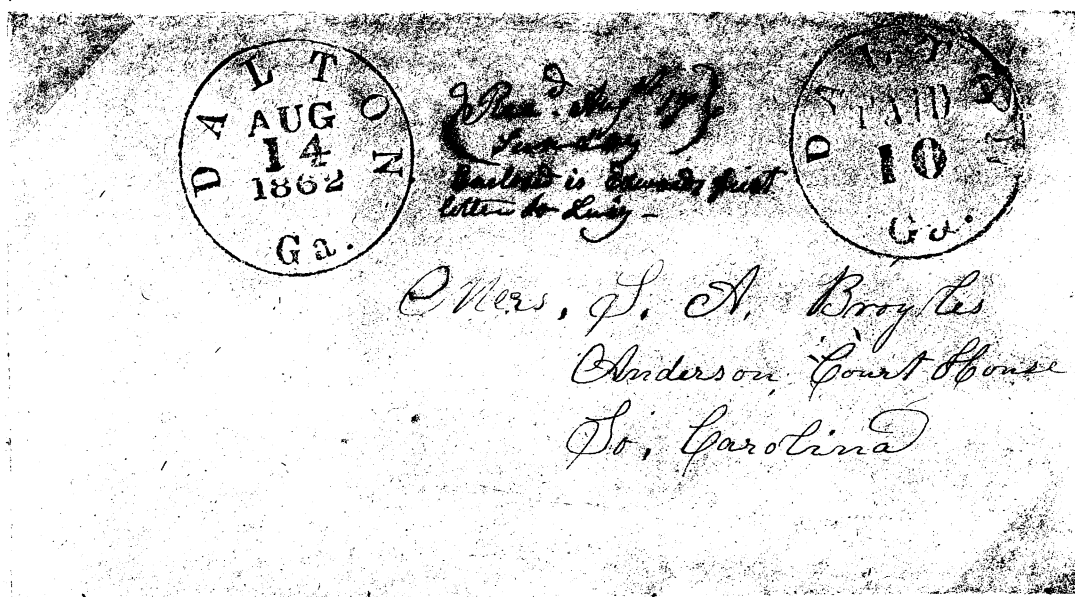 DALTON
AUG
14
1862
Ga.
Rec.d Augst 17
Sunday
Enclosed is Edwards first
letter to Lucy -
DALTON
PAID
10
Ga.
Mrs. S. A. Broyles
Anderson Court House
So, Carolina